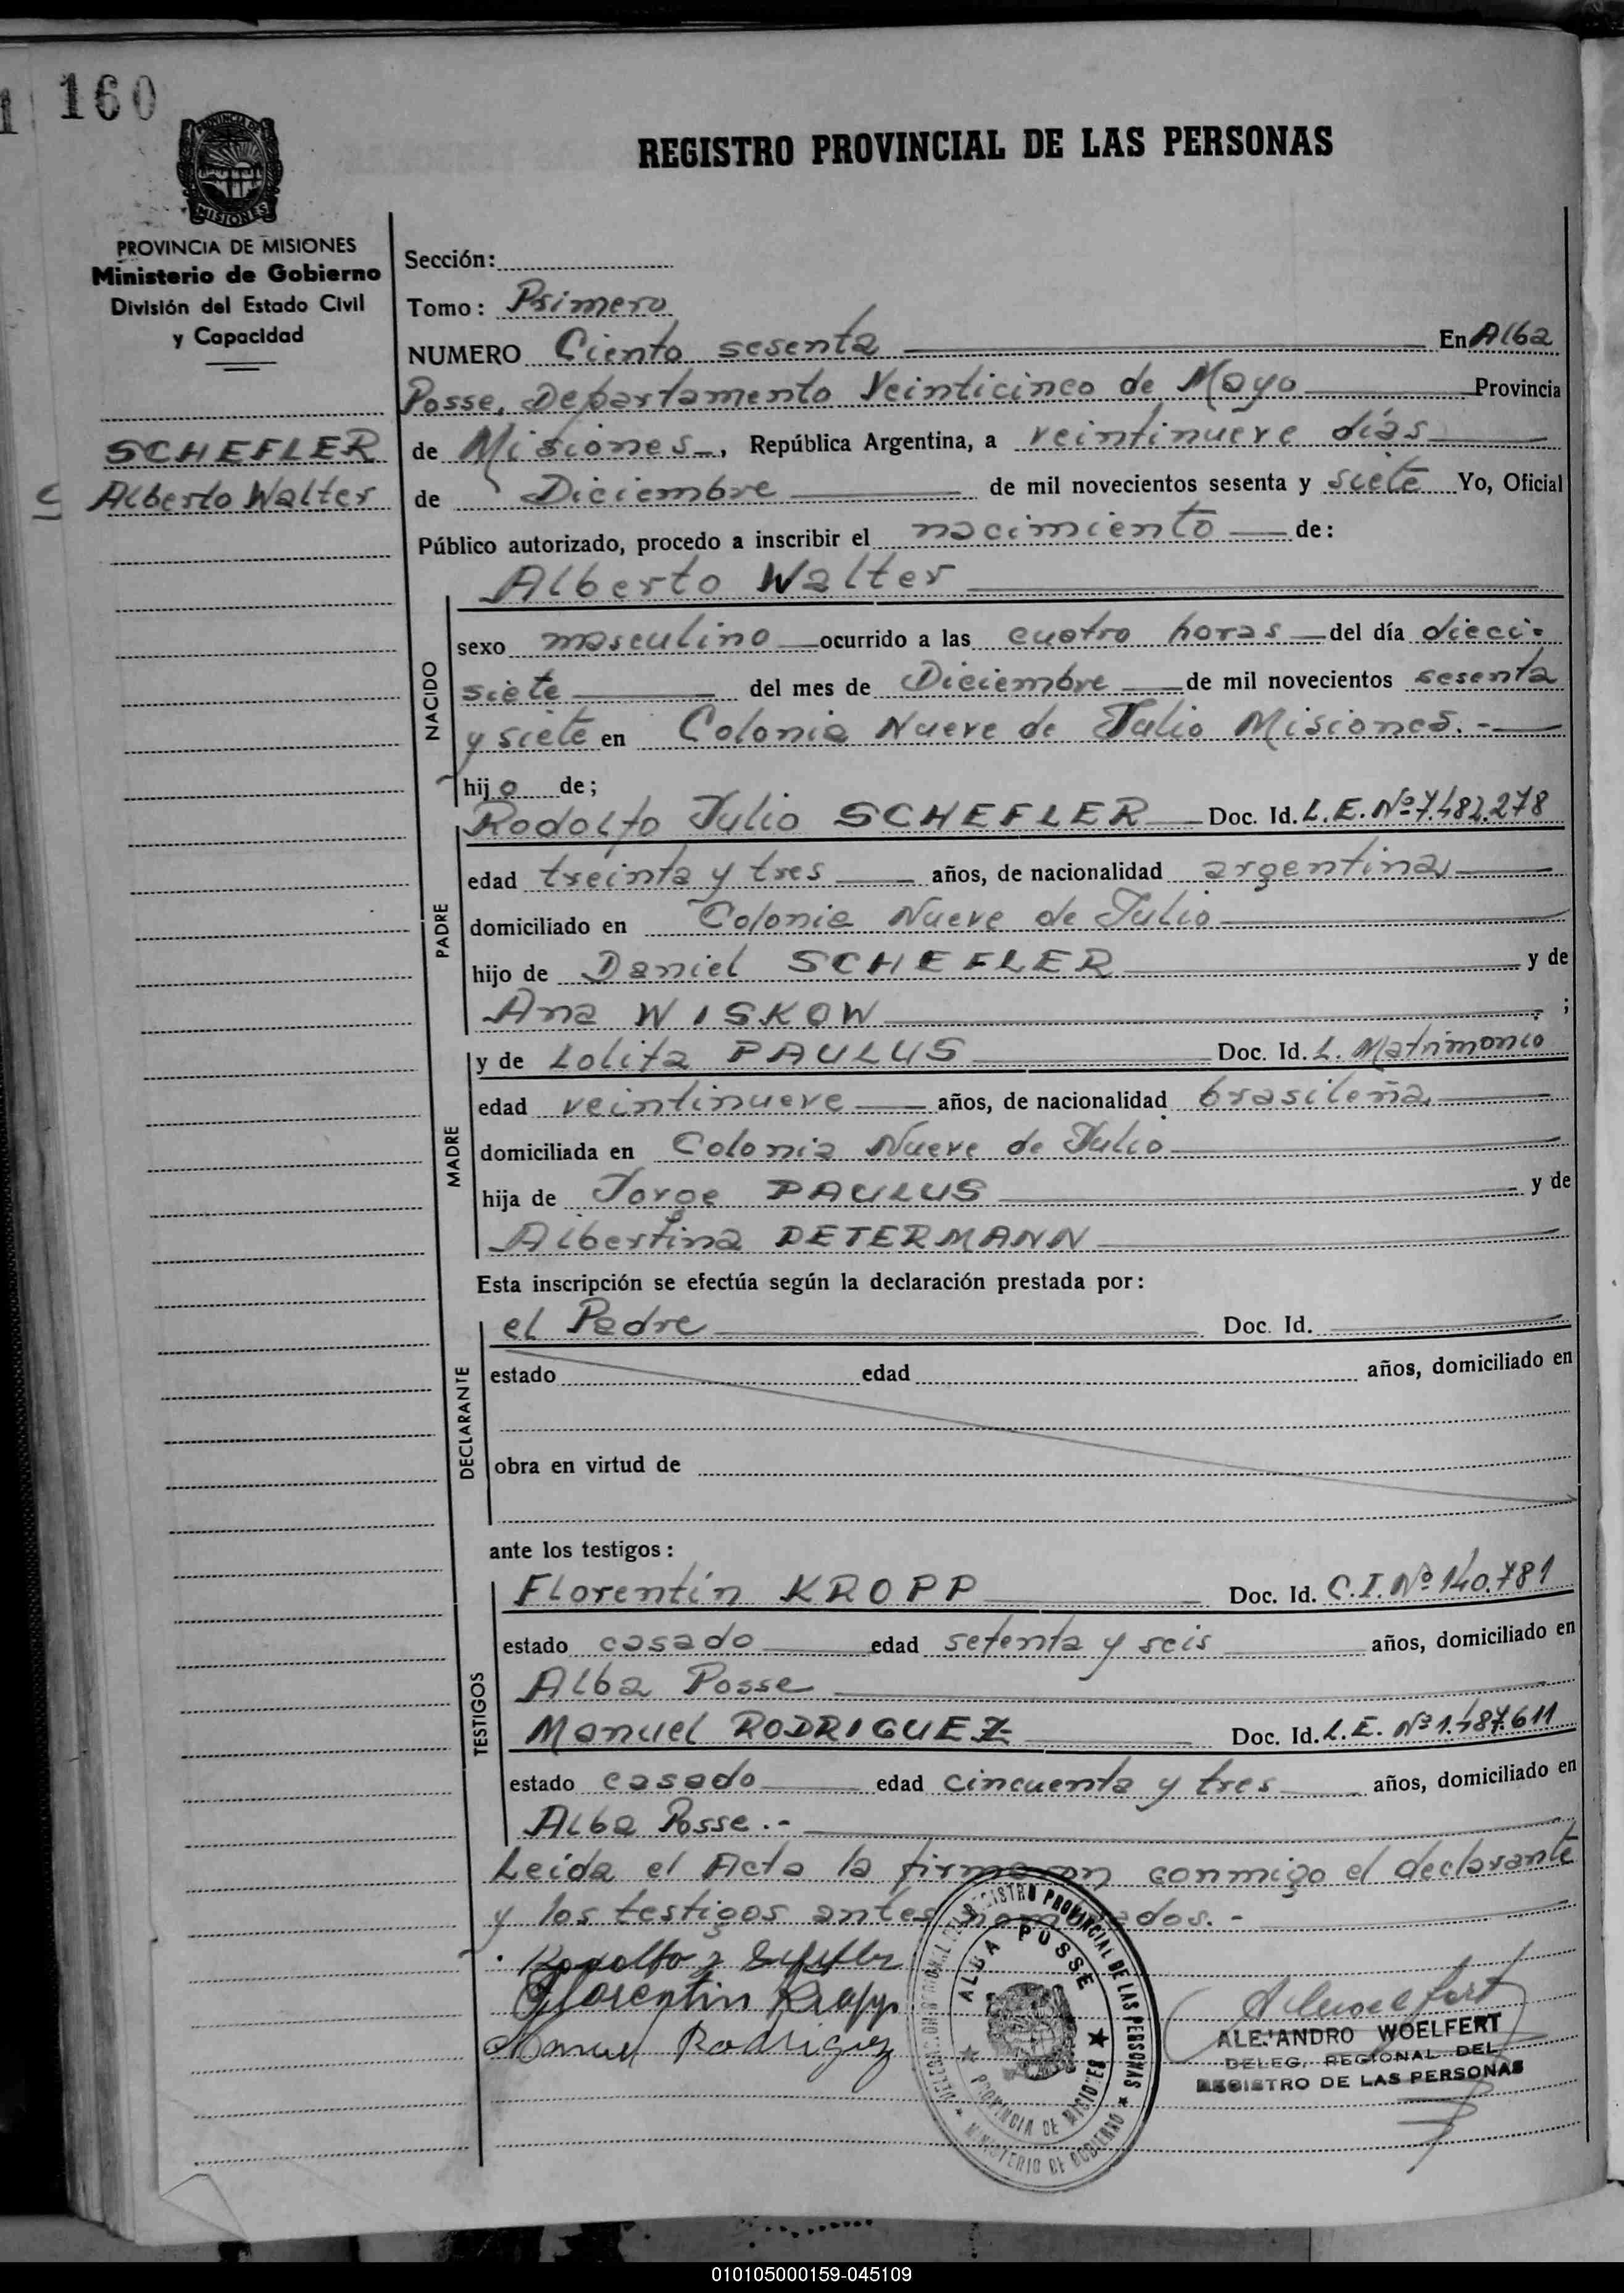 160
REGISTRO PROVINCIAL DE LAS PERSONAS
PROVINCIA DE MISIONES
MISIONES
PROVINCIA DE MISIONES
Ministerio de Gobierno
División del Estado Civil
y Capacidad
SCHEFLER
Alberto Walter
Sección:
Tomo: Primero
NUMERO Ciento sesenta En Alba
Posse, Departamento Veinticinco de Mayo Provincia
de Misiones, República Argentina, a veintinueve días
de Diciembre de mil novecientos sesenta y siete Yo, Oficial
Público autorizado, procedo a inscribir el nacimiento de:
Alberto Walter
NACIDO
sexo masculino ocurrido a las cuatro horas del día dieci-
siete del mes de Diciembre de mil novecientos sesenta
y siete en Colonia Nueve de Julio Misiones.-
hijo de;
PADRE
Rodolfo Julio SCHEFLER Doc. Id. L.E. Nº 7.482.278
edad treinta y tres años, de nacionalidad argentina
domiciliado en Colonia Nueve de Julio
hijo de Daniel SCHEFLER y de
Ana WISKOW ;
MADRE
y de Lolita PAULUS Doc. Id. L. Matrimonio
edad veintinueve años, de nacionalidad brasileña
domiciliada en Colonia Nueve de Julio
hija de Jorge PAULUS y de
Albertina DETERMANN
Esta inscripción se efectúa según la declaración prestada por:
DECLARANTE
el Padre Doc. Id.
estado edad años, domiciliado en
obra en virtud de
ante los testigos:
TESTIGOS
Florentín KROPP Doc. Id. C.I. Nº 140.781
estado casado edad setenta y seis años, domiciliado en
Alba Posse
Manuel RODRIGUEZ Doc. Id. L.E. Nº 1.487.611
estado casado edad cincuenta y tres años, domiciliado en
Alba Posse.-
Leída el Acta la firmaron conmigo el declarante
y los testigos antes nombrados.-
Rodolfo J Schefler
Florentin Kropp
Manuel Rodriguez
REGISTRO PROVINCIAL DE LAS PERSONAS
ALBA POSSE
PROVINCIA DE MISIONES
MINISTERIO DE GOBIERNO
A Woelfert
ALEJANDRO WOELFERT
DELEG. REGIONAL DEL
REGISTRO DE LAS PERSONAS
010105000159-045109